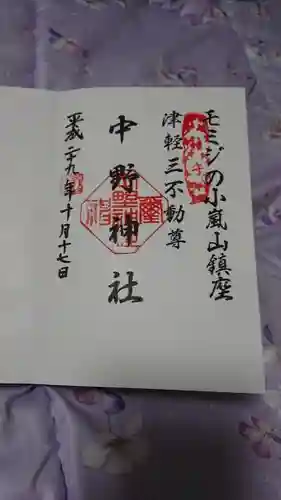 モミジの小嵐山鎮座
津軽三不動尊
中野神社
平成二十九年十月十七日